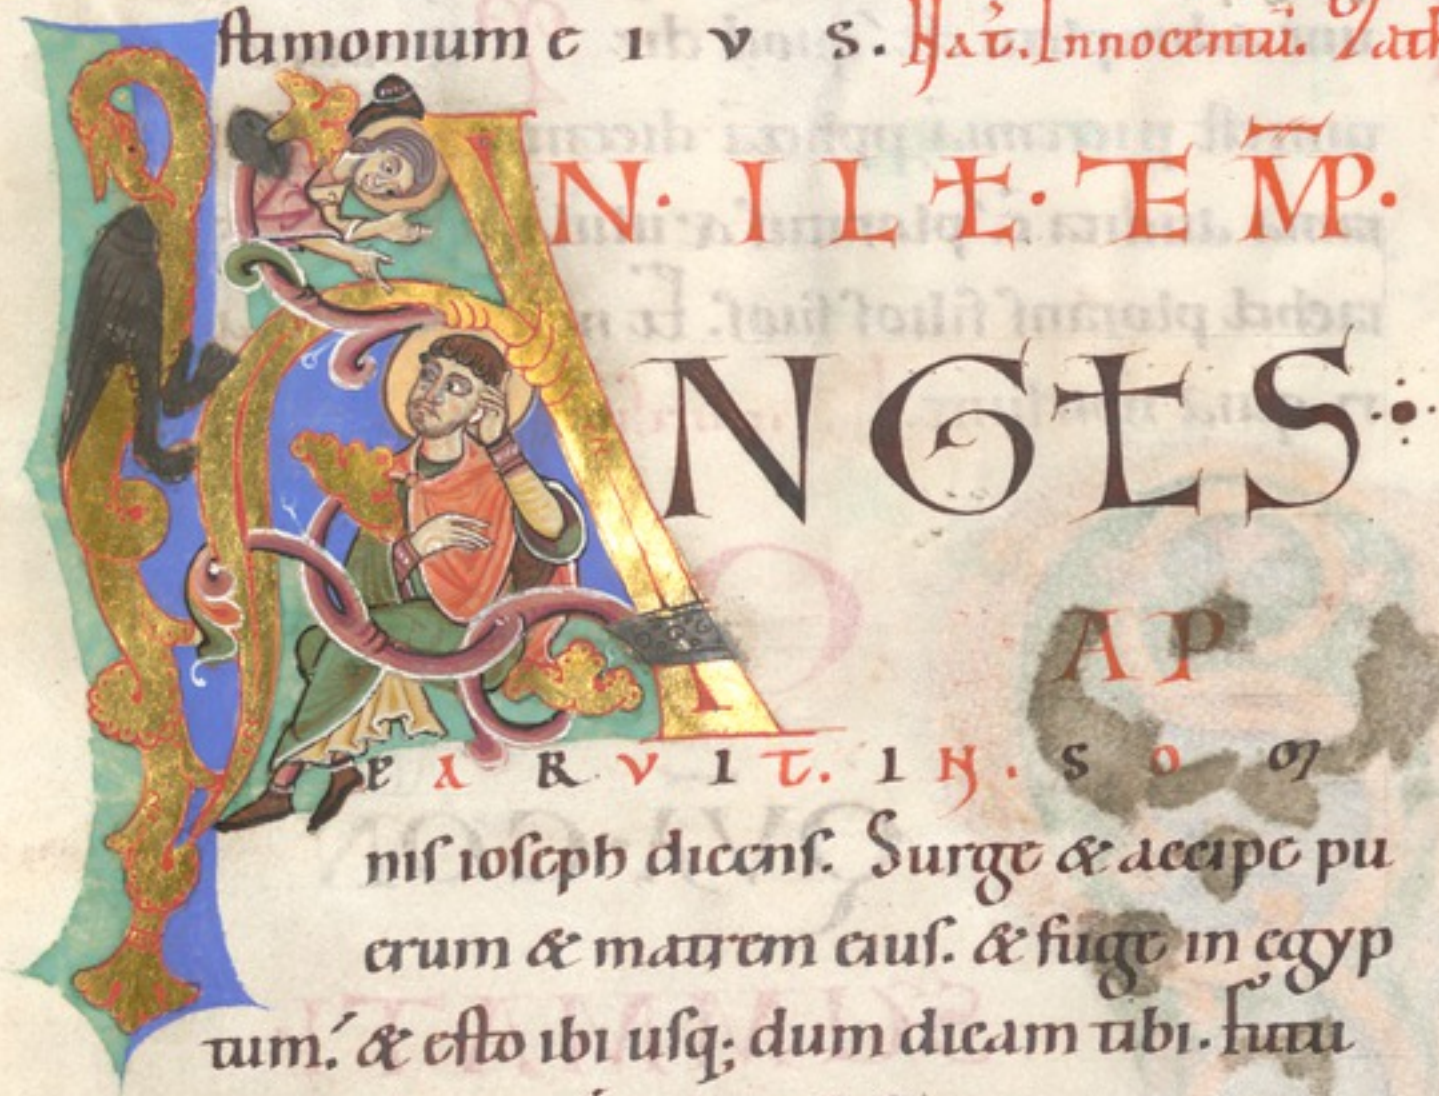 stimonium eius. Nat̄. Innocentū. Math
IN · ILL T · TEMP̄ ·
ANGLS
AP
PARVIT. IN. SOM
nis ioseph dicens. Surge & accipe pu
erum & matrem eius. & fuge in egyp
tum. & esto ibi usq; dum dicam tibi. futu